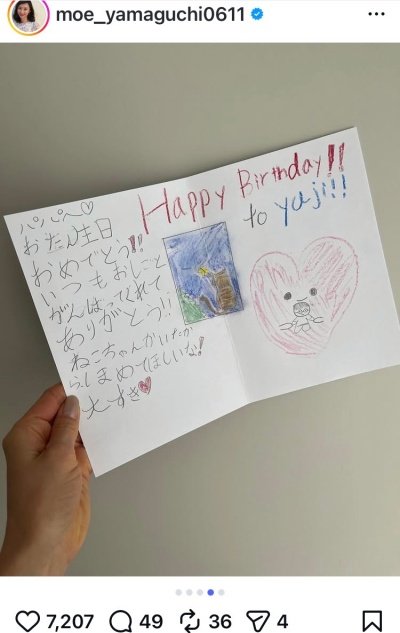 moe_yamaguchi0611
パパへ♡
おたん生日
おめでとう!!
いつもおしごと
がんばってくれて
ありがとう!!
ねこちゃんがいたか
らしまめてほしいな!
大すき♥
Happy Birthday!!
to yuji!!!
7,207
49
36
4